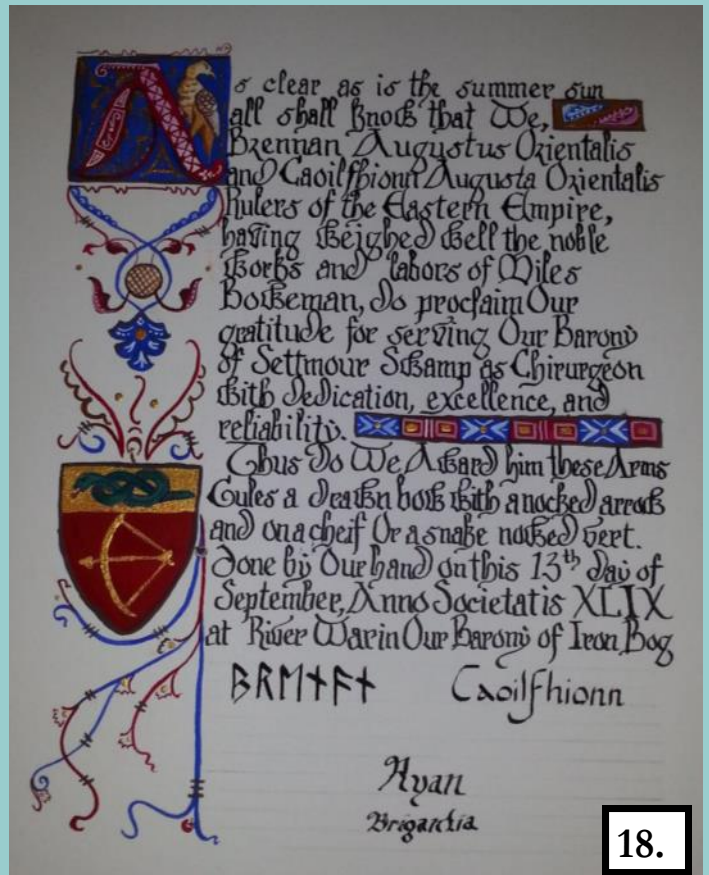 As clear as is the summer sun
all shall know that We,
Brennan Augustus Orientalis
and Caoilfhionn Augusta Orientalis
Rulers of the Eastern Empire,
having weighed well the noble
works and labors of Miles
Boweman, do proclaim Our
gratitude for serving Our Barony
of Settmour Swamp as Chirurgeon
with dedication, excellence, and
reliability.
Thus do We Award him these Arms
Gules a drawn bow with a nocked arrow
and on a cheif Or a snake nowed vert.
Done by Our hand on this 13th day of
September, Anno Societatis XLIX
at River War in Our Barony of Iron Bog
ᛒᚱᛖᚾᚨᚾ Caoilfhionn
Ryan
Brigantia
18.